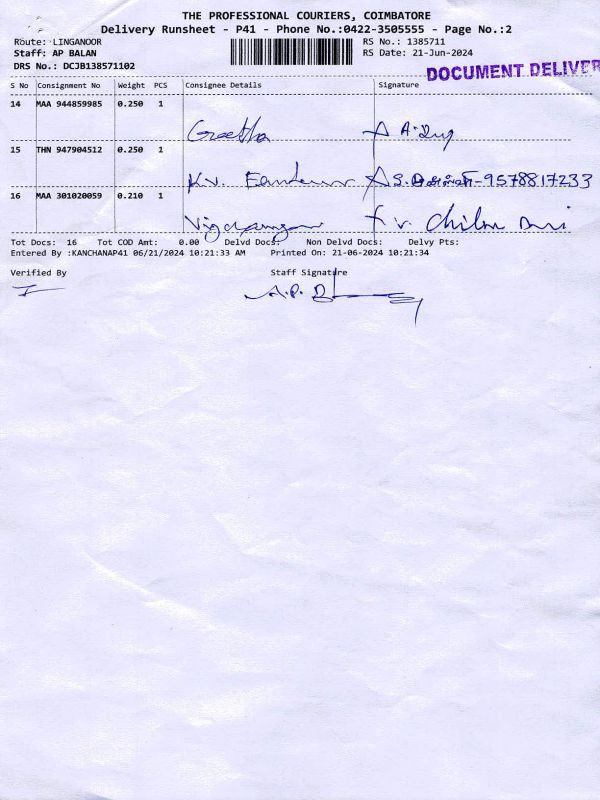 THE PROFESSIONAL COURIERS, COIMBATORE
Delivery Runsheet - P41 - Phone No.:0422-3505555 - Page No.:2
Route: LINGANOOR RS No.: 1385711
Staff: AP BALAN RS Date: 21-Jun-2024
DRS No.: DCJB138571102 DOCUMENT DELIVER
S No Consignment No Weight PCS Consignee Details Signature
14 MAA 944859985 0.250 1
Geetha A.
15 THN 947904512 0.250 1
K.V. S. -9578817233
16 MAA 301020059 0.210 1
V.
Tot Docs: 16 Tot COD Amt: 0.00 Delvd Docs: Non Delvd Docs: Delvy Pts:
Entered By :KANCHANAP41 06/21/2024 10:21:33 AM Printed On: 21-06-2024 10:21:34
Verified By Staff Signature
A.P.